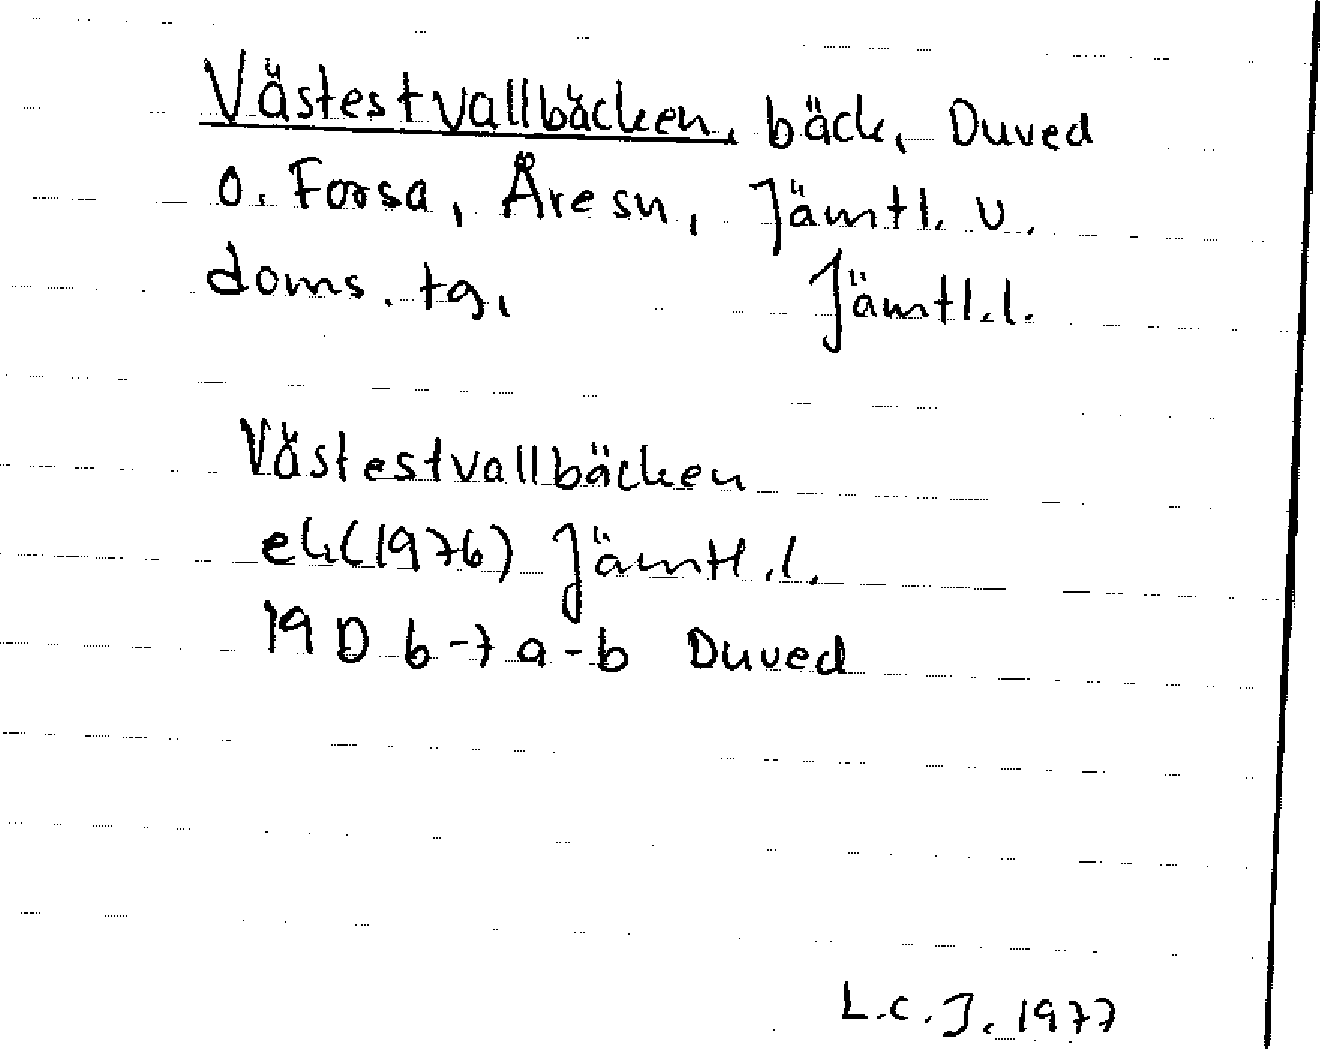 Västestvallbäcken, bäck, Duved
o. Forsa, Åre sn, Jämtl. v.
doms. tg,
Jämtl.l.
Västestvallbäcken
ek (1976) Jämtl.l.
19 D 6-7 a-b Duved
L.C.J. 1977